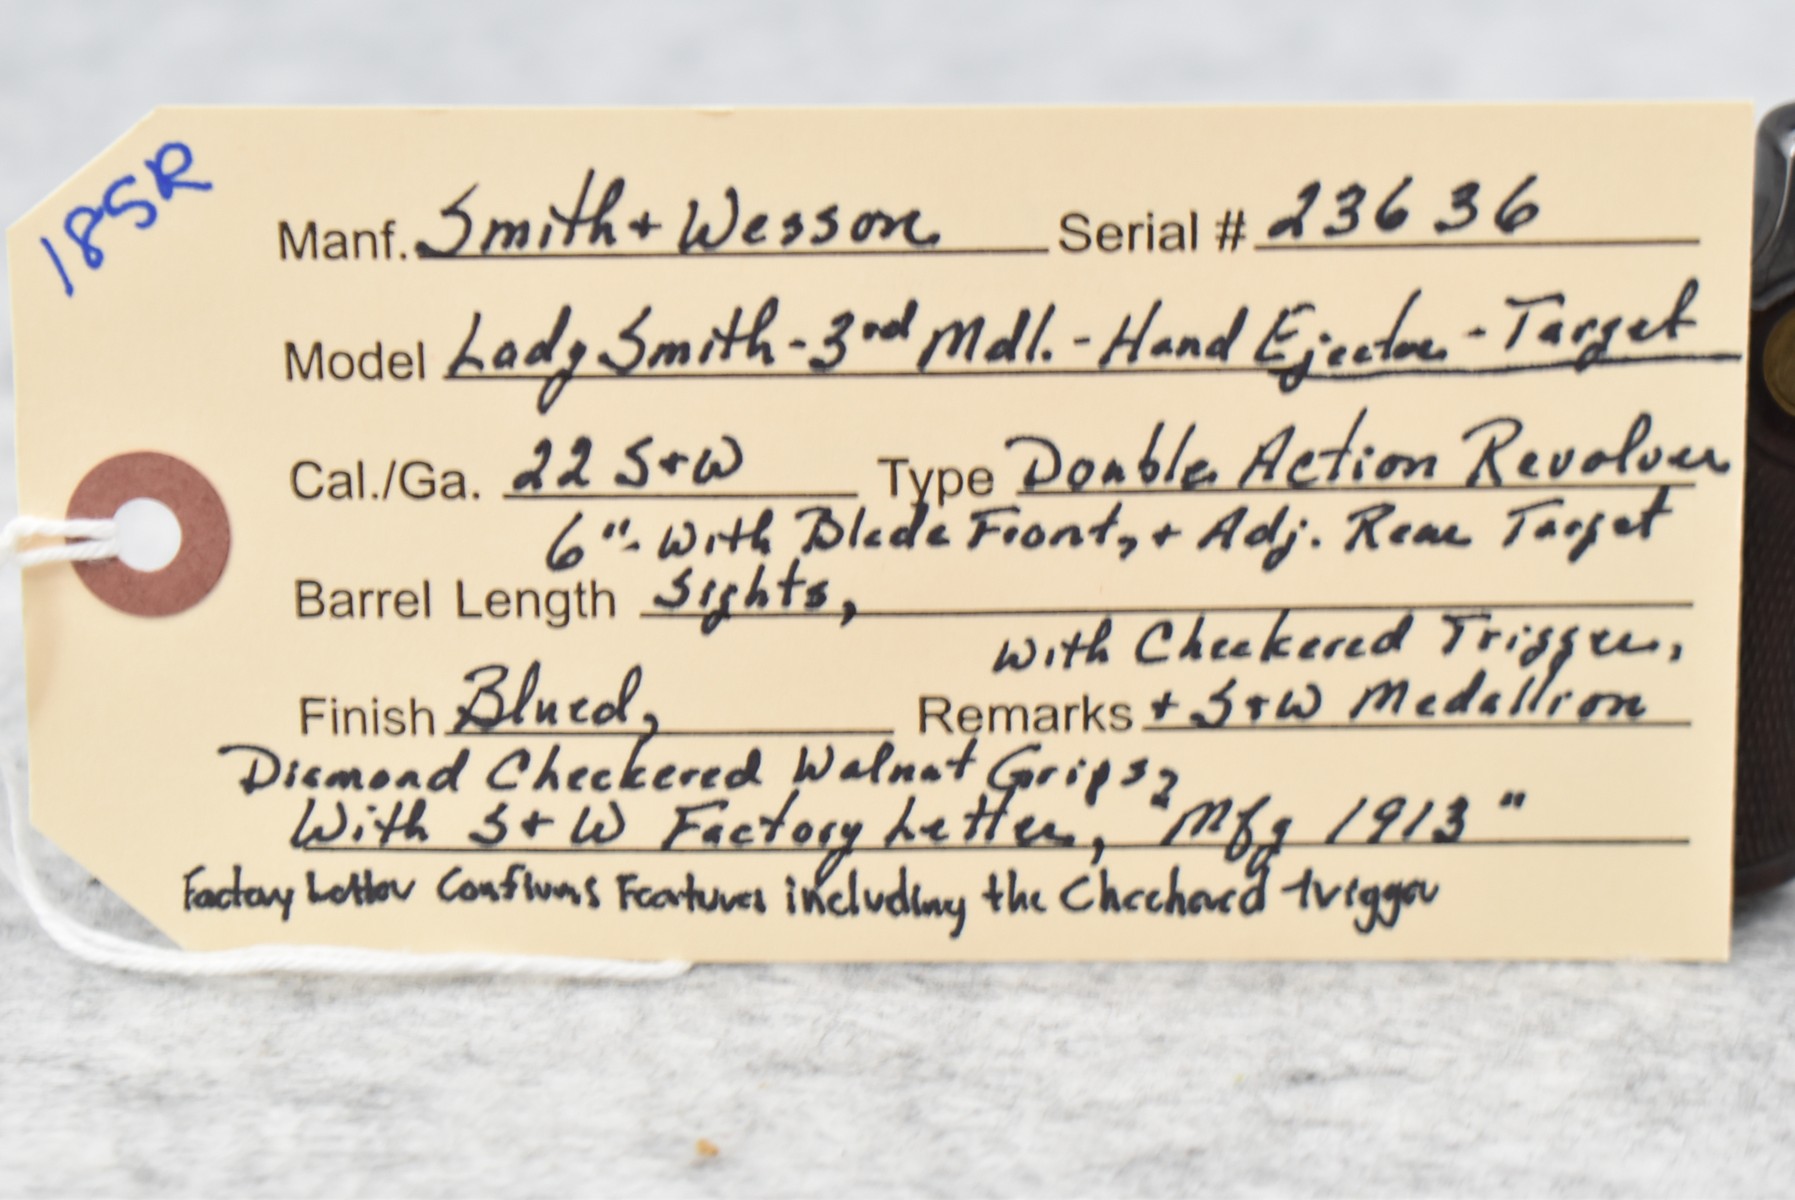 185R
Manf. Smith + Wesson Serial # 23636
Model Lady Smith - 3rd Mdl. - Hand Ejector - Target
Cal./Ga. 22 S+W Type Double Action Revolver
6" - with Blade Front, + Adj. Rear Target
Barrel Length Sights,
with Checkered Trigger,
Finish Blued, Remarks + S+W Medallion
Diamond Checkered Walnut Grips,
With S+W Factory Letter, "Mfg 1913"
Factory Letter Confirms Features including the Checkered trigger